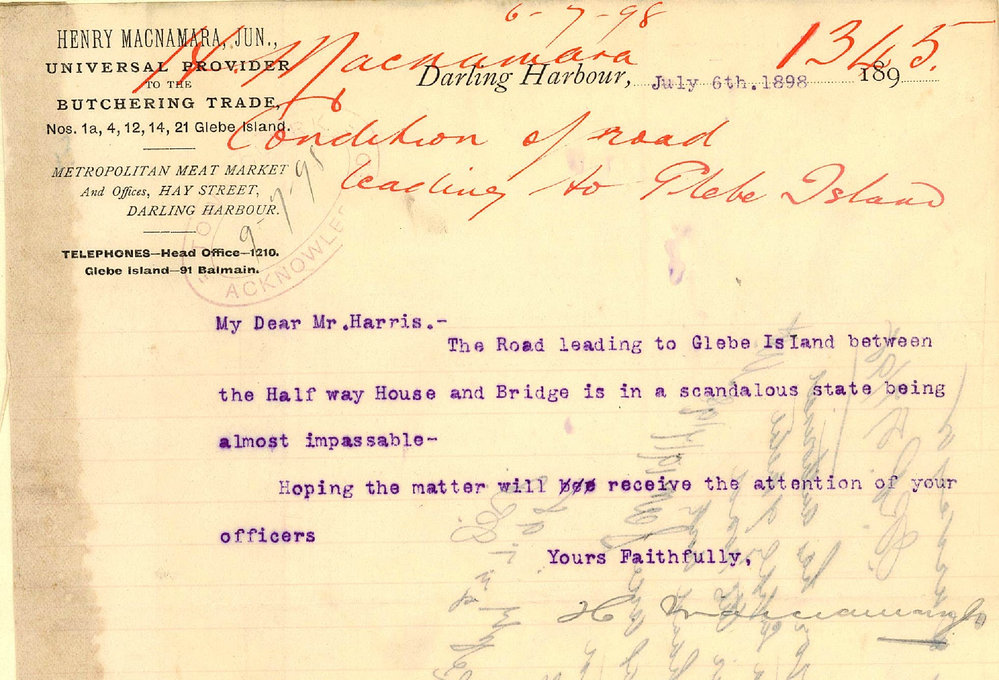 6-7-98
H. Macnamara 1345.
Condition of road
leading to Glebe Island
HENRY MACNAMARA, JUN.,
UNIVERSAL PROVIDER
TO THE
BUTCHERING TRADE,
Nos. 1a, 4, 12, 14, 21 Glebe Island.
METROPOLITAN MEAT MARKET
And Offices, HAY STREET,
DARLING HARBOUR.
TELEPHONES—Head Office—1210.
Glebe Island—91 Balmain.
Darling Harbour, July 6th. 1898 189
9-7-98
ACKNOWLED
My Dear Mr.Harris.-
The Road leading to Glebe IsIand between
the Half way House and Bridge is in a scandalous state being
almost impassable-
Hoping the matter will receive the attention of your
officers
Yours Faithfully,
H Macnamara Jr